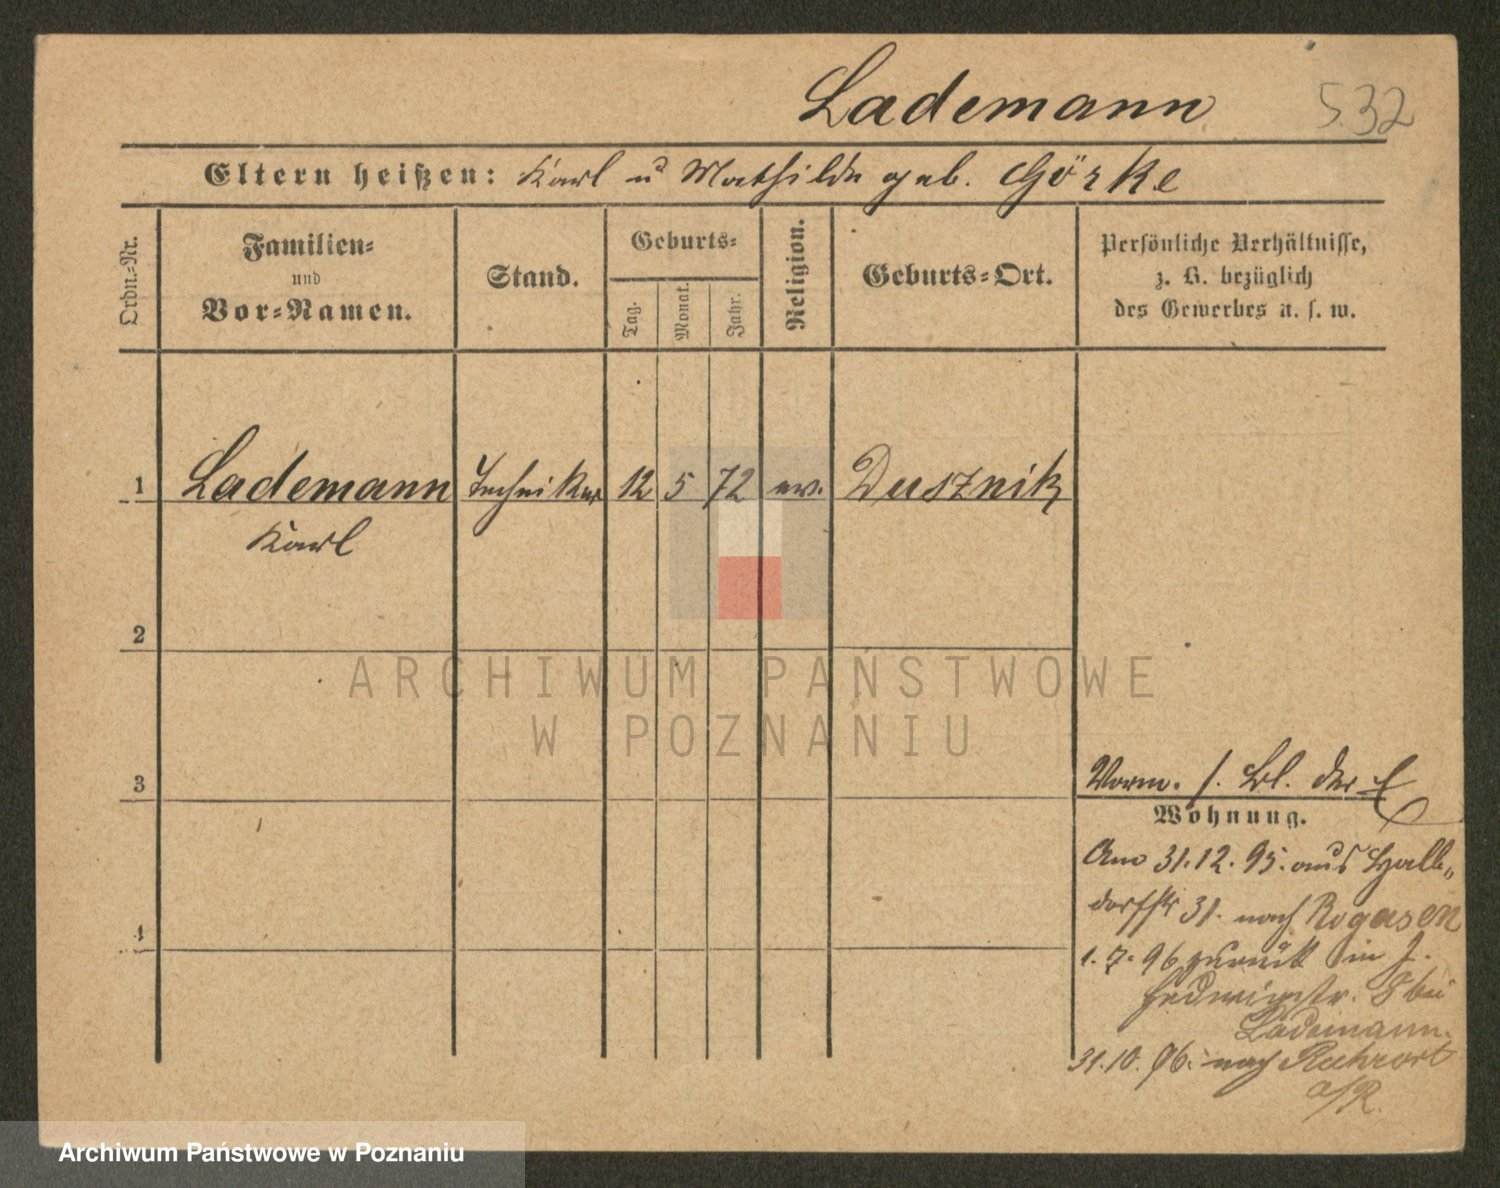 Lademann 532
Eltern heißen: Karl u Mathilde geb. Görke
Ordn.-Nr.
Familien-
und
Vor-Namen.
Stand.
Geburts-
Tag.
Monat.
Jahr.
Religion.
Geburts-Ort.
Persönliche Verhältnisse,
z. B. bezüglich
des Gewerbes u. s. w.
1 Lademann Techniker 12 5 72 ev. Dusznik
Karl
2
3
4
Vorm. s. Bl. der
Wohnung.
Am 31.12.95. aus
31. nach Rogasen
1.7.96 zurück in J.
Hedwigstr. 8 bei
Lademann.
31.10.96. nach Ruhrort
a/R.
ARCHIWUM PAŃSTWOWE
W POZNANIU
Archiwum Państwowe w Poznaniu